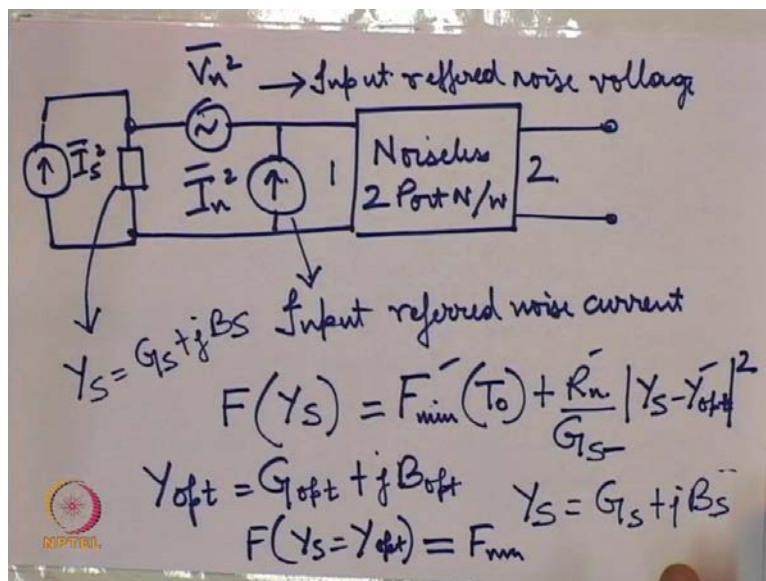 V̅n² → Input reffered noise voltage
I̅s²
I̅n²
1
Noiseless
2 Port N/w
2
Input referred noise current
Ys = Gs + jBs
F(Ys) = Fmin (To) + Rn/Gs |Ys - Yopt|²
Yopt = Gopt + j Bopt
Ys = Gs + j Bs
F(Ys = Yopt) = Fmin
NPTEL